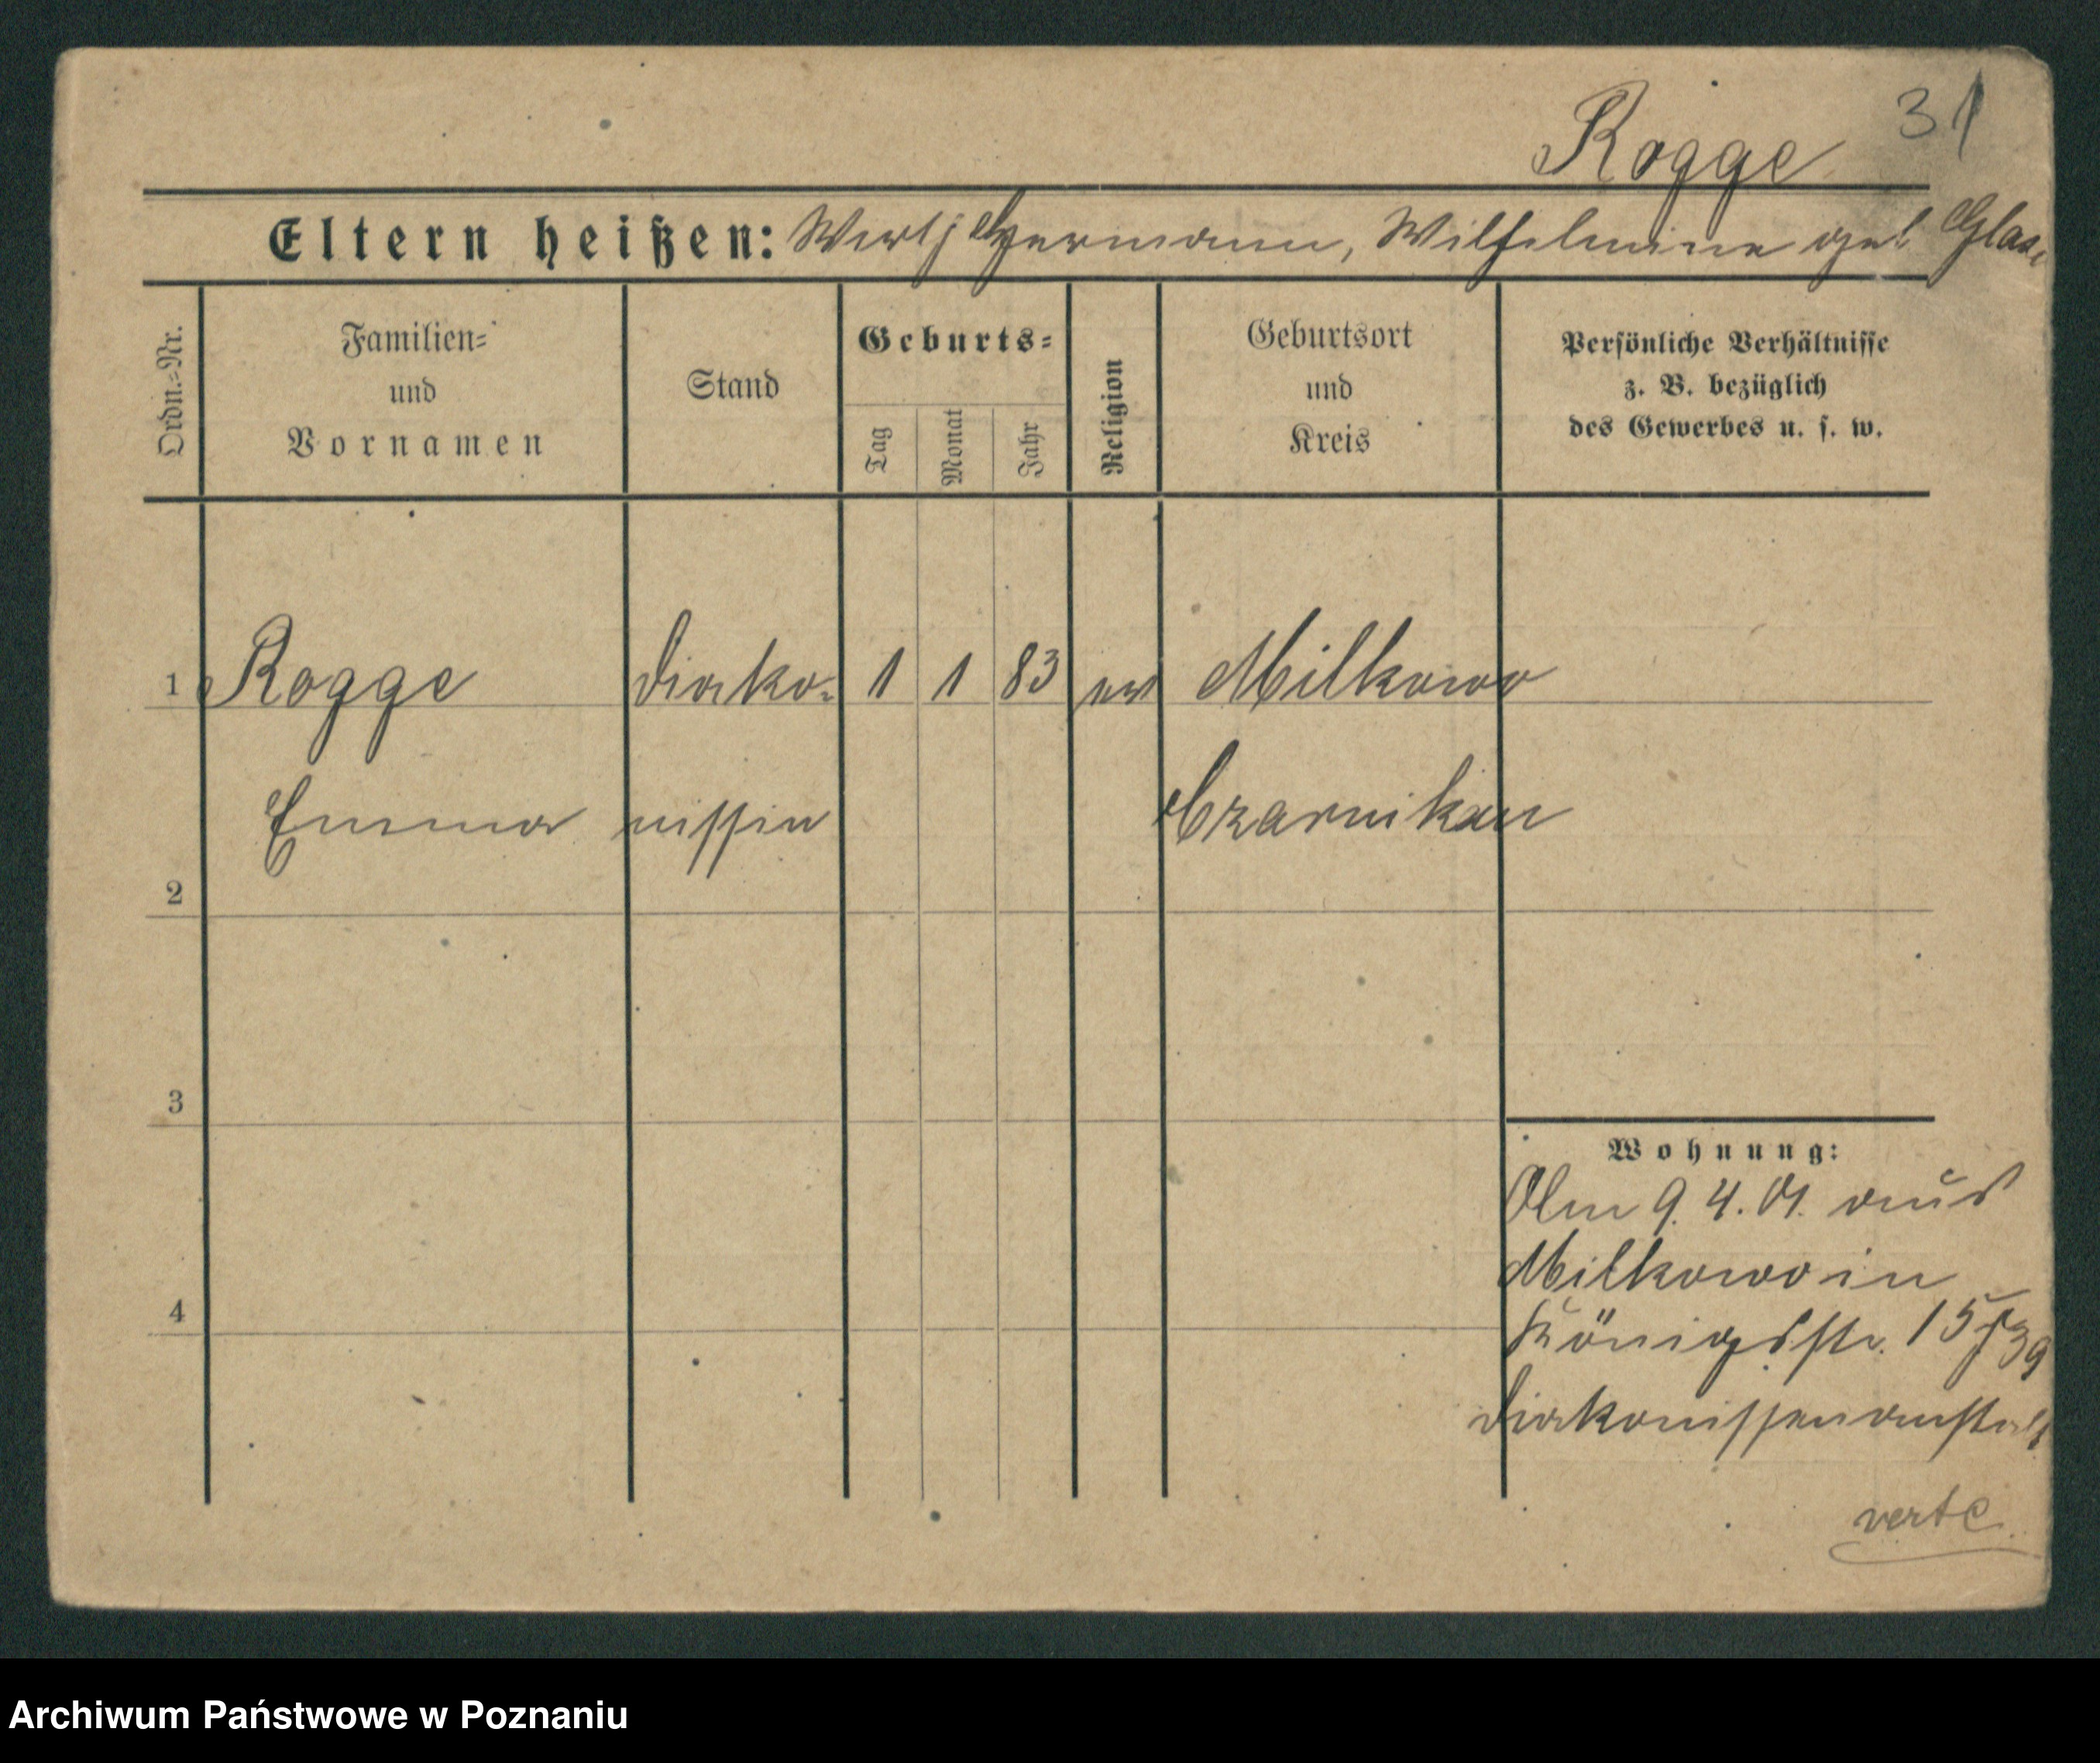 Rogge 31
Eltern heißen: Wirth Hermann, Wilhelmine geb Glase
Ordn.-Nr.
Familien-
und
Vornamen
Stand
Geburts-
Tag
Monat
Jahr
Religion
Geburtsort
und
Kreis
Persönliche Verhältnisse
z. B. bezüglich
des Gewerbes u. s. w.
1 Rogge Diako- 1 1 83 ev Milkowo
Emma nissin Czarnikau
2
3
4
Wohnung:
Am 9.4.01. aus
Milkowo in
Königsstr. 15
Diakonissenanstalt
verte.
Archiwum Państwowe w Poznaniu